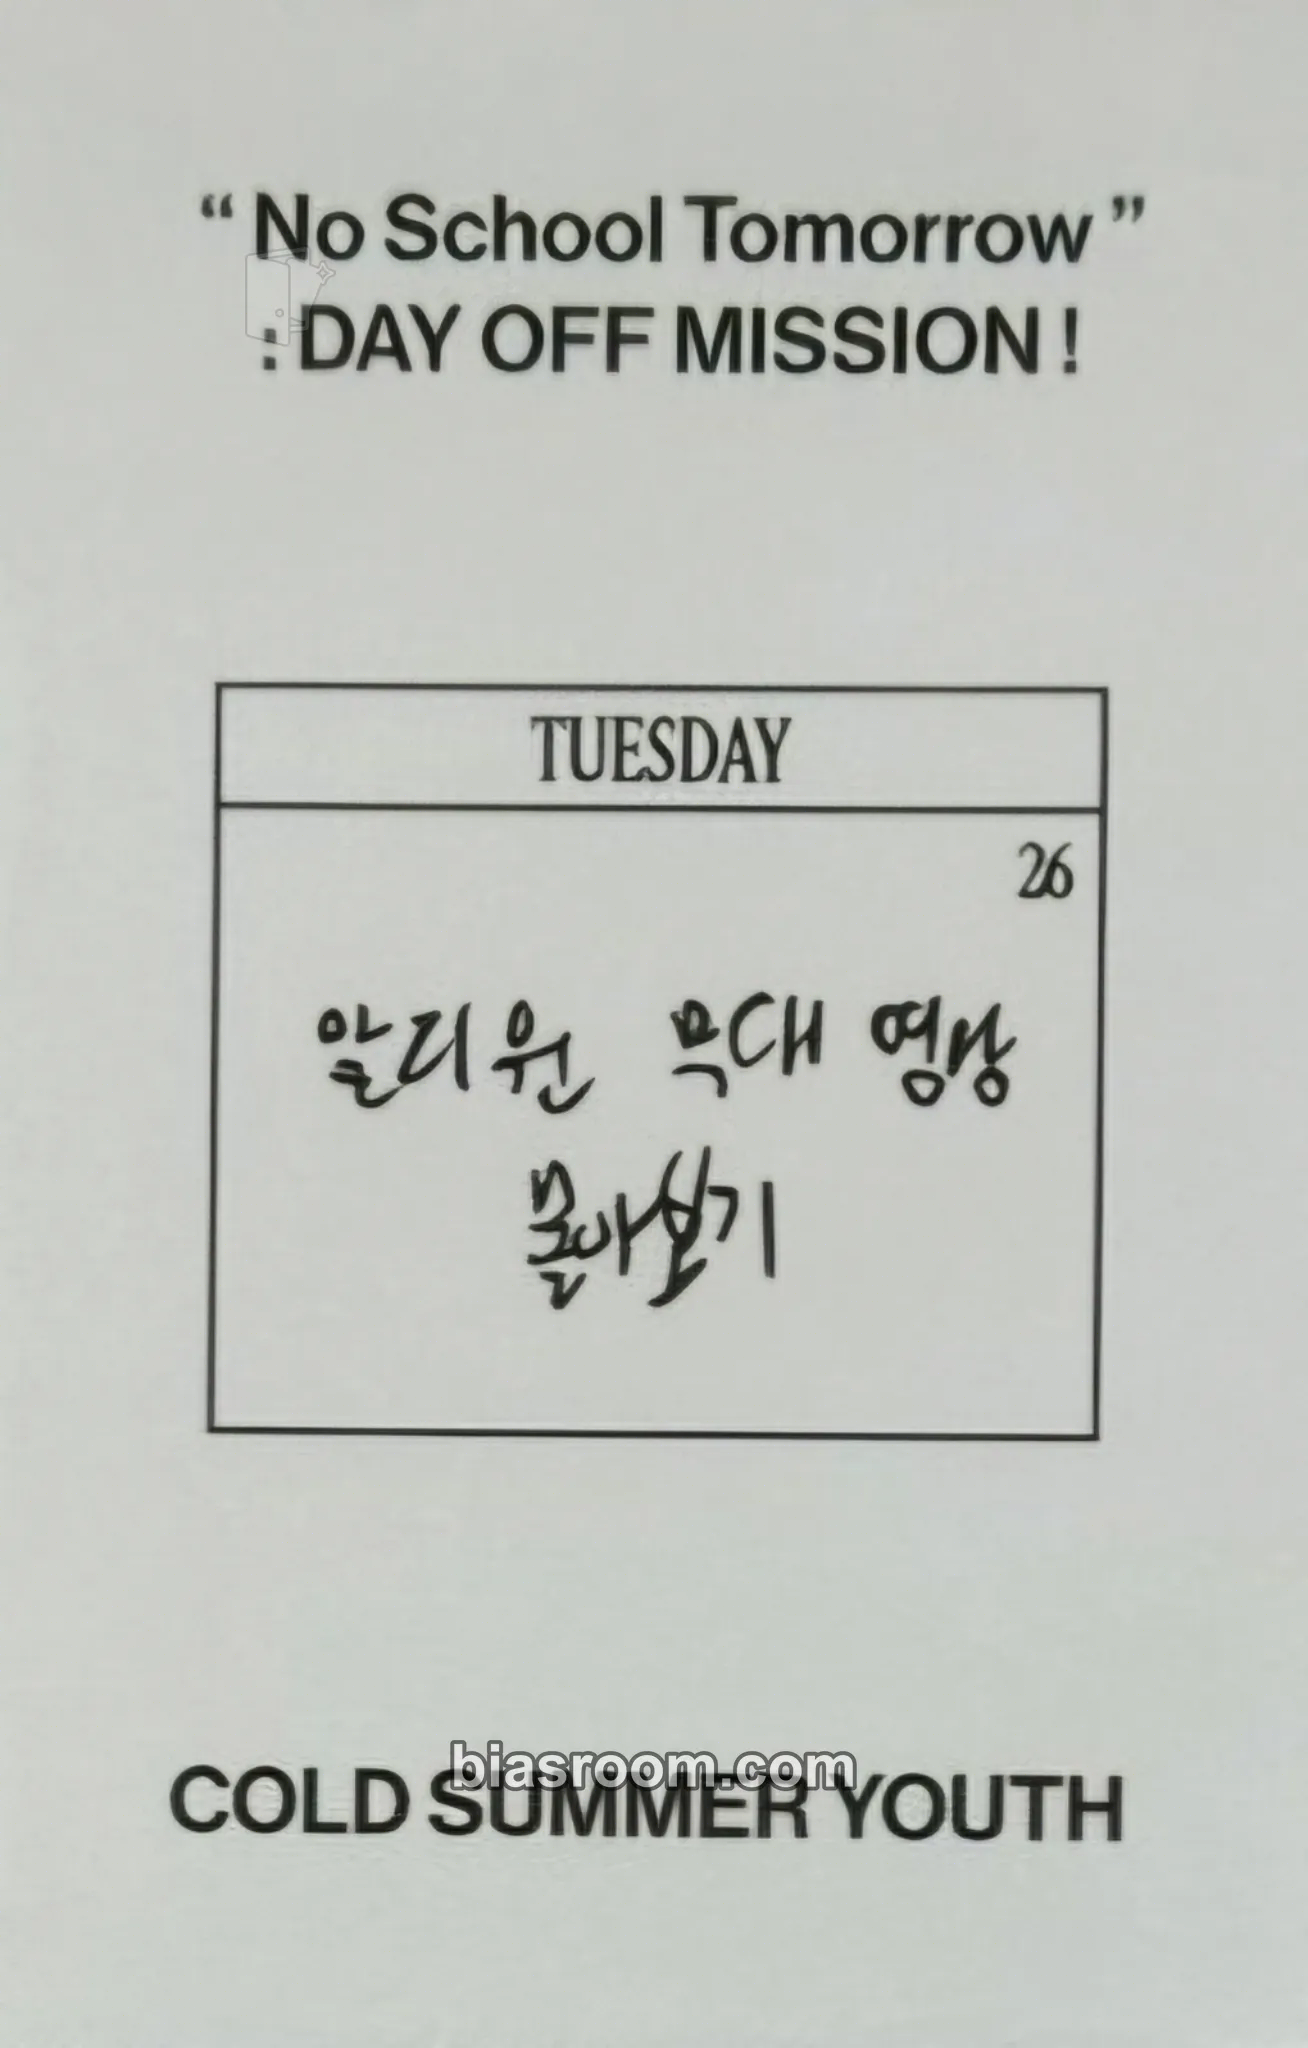 “ No School Tomorrow ”
: DAY OFF MISSION !
TUESDAY
26
알리원 무대 영상
몰아보기
biasroom.com
COLD SUMMER YOUTH